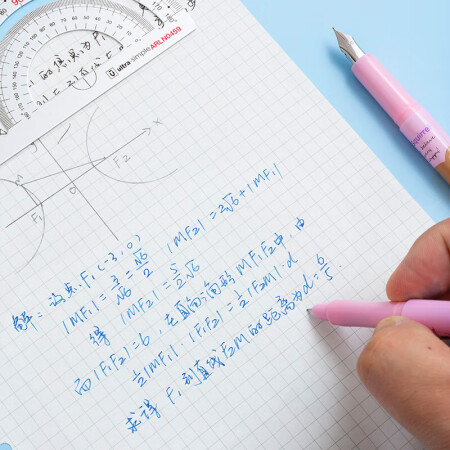 的焦点为F₁
ultra·simple ARLN0459
x
M
F₁
O
F₂
解：设点F₁(-3,0)
|MF₁|=3/√6=√6/2 |MF₂|=2√6+|MF₁|
得 |MF₂|=5/2√6
而|F₁F₂|=6,在直角三角形MF₁F₂中,由
1/2|MF₁|·|F₁F₂|=1/2|F₂M|·d
求得F₁到直线F₂M的距离为d=6/5.